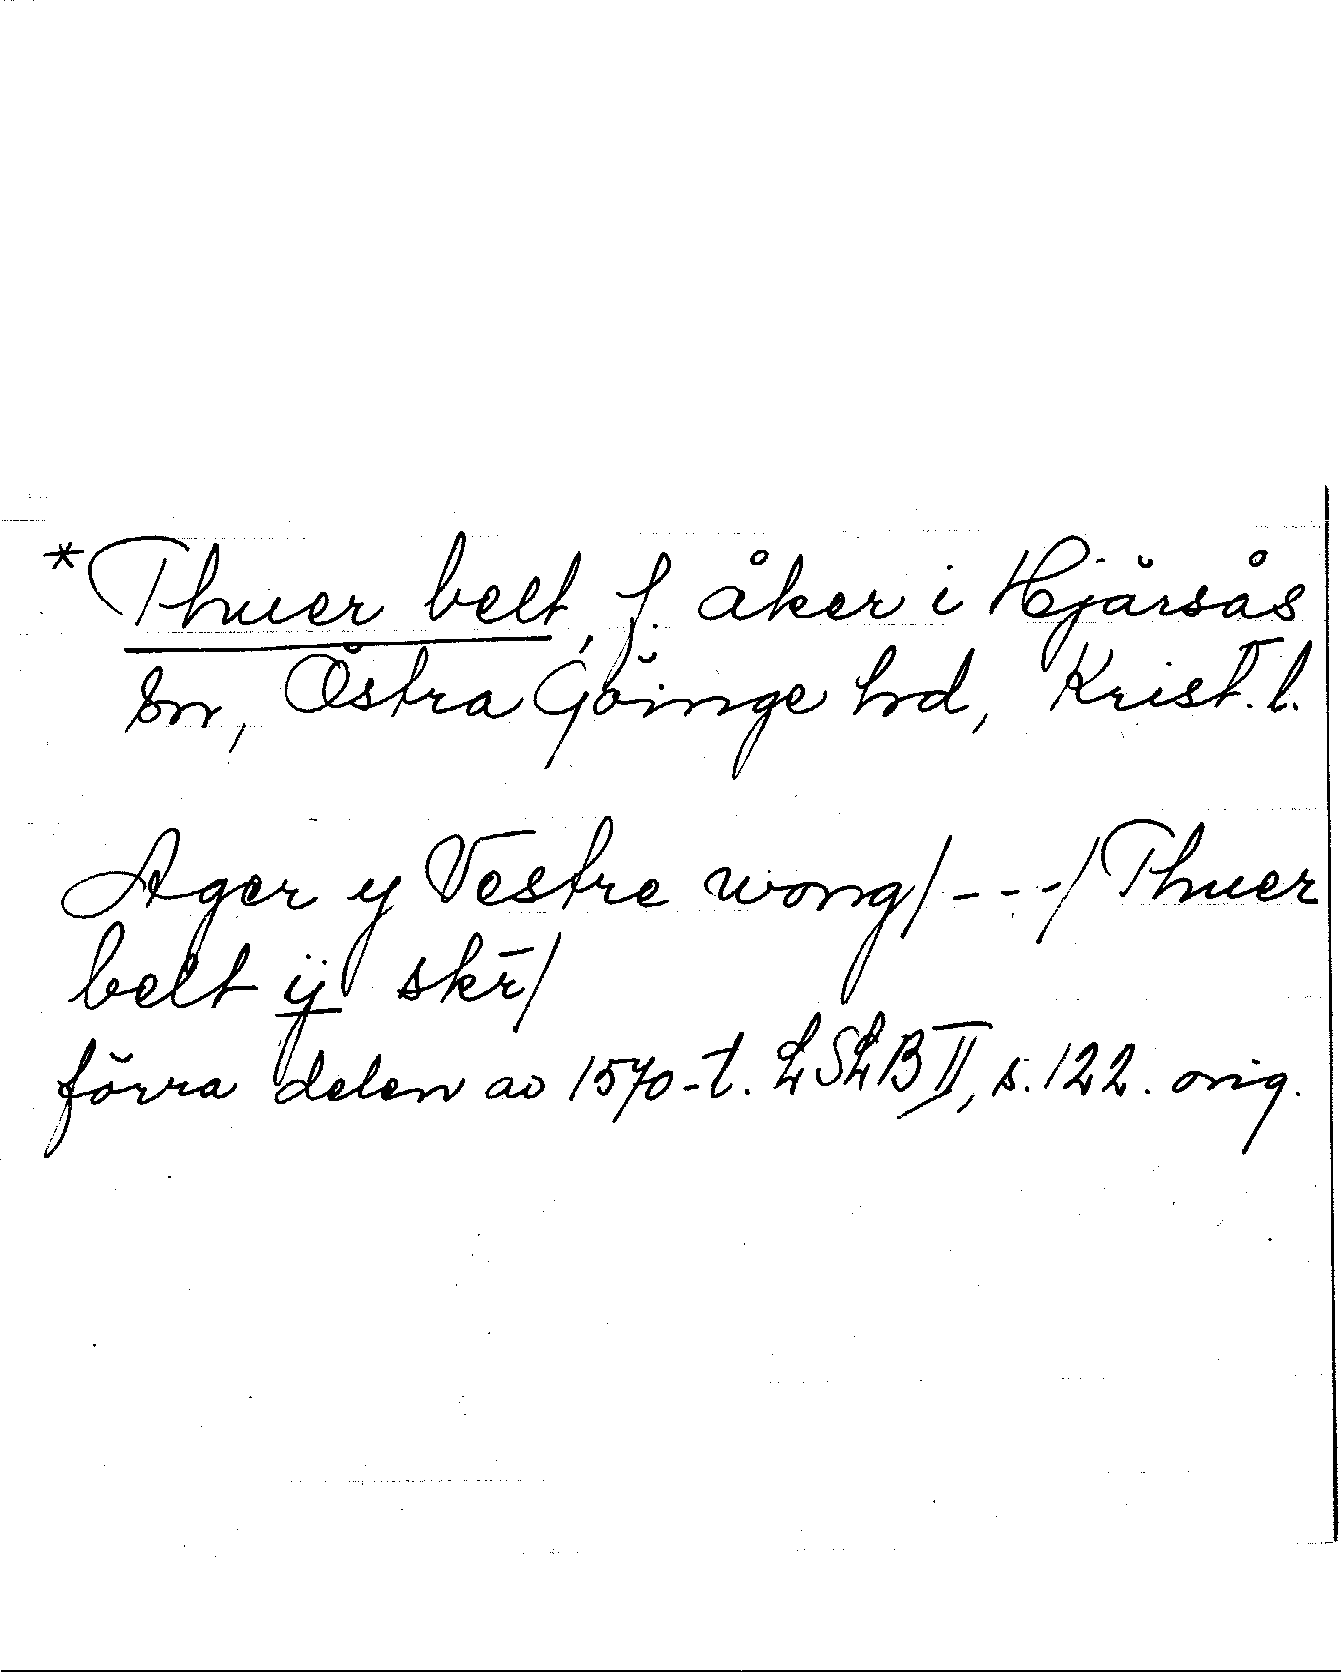 *Thuer belt, f. åker i Hjärsås
sn, Östra Göinge hd, Krist. l.
Ager y Vestre wong/---/Thuer
belt ij skr̄/
förra delen av 1570-t. LSLB II, s. 122. orig.